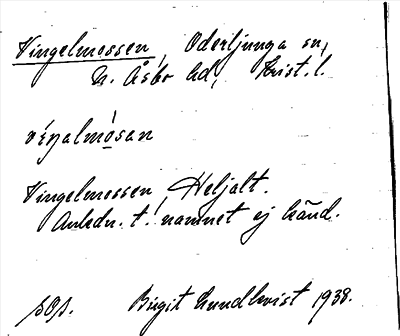 Vingelmossen, Oderljunga sn,
N. Åsbo hd, Krist. l.
viŋalmósan
Vingelmossen, Heljalt.
Anledn. t. namnet ej känd.
sOs. Birgit Lundkvist 1938.